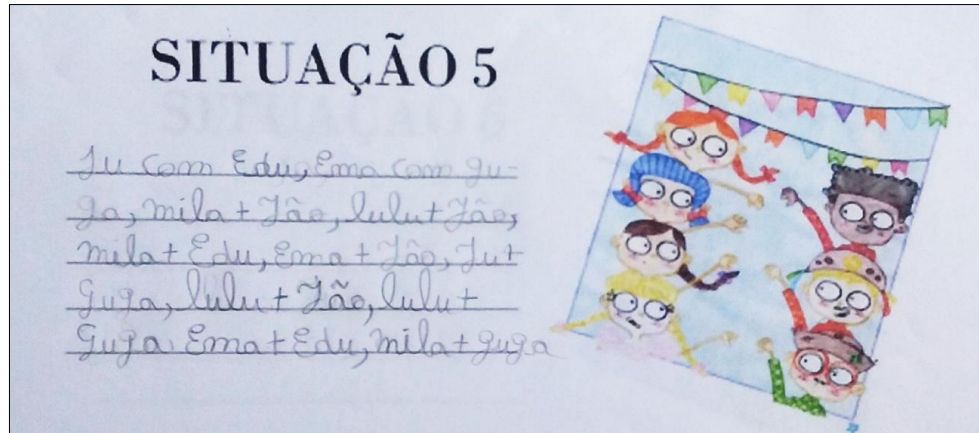 SITUAÇÃO 5
Ju com Edu, Ema com gu-
ga, mila + Jão, lulu + Jão,
mila + Edu, Ema + Jão, Ju +
guga, lulu + Jão, lulu +
Guga Ema + Edu, mila + guga